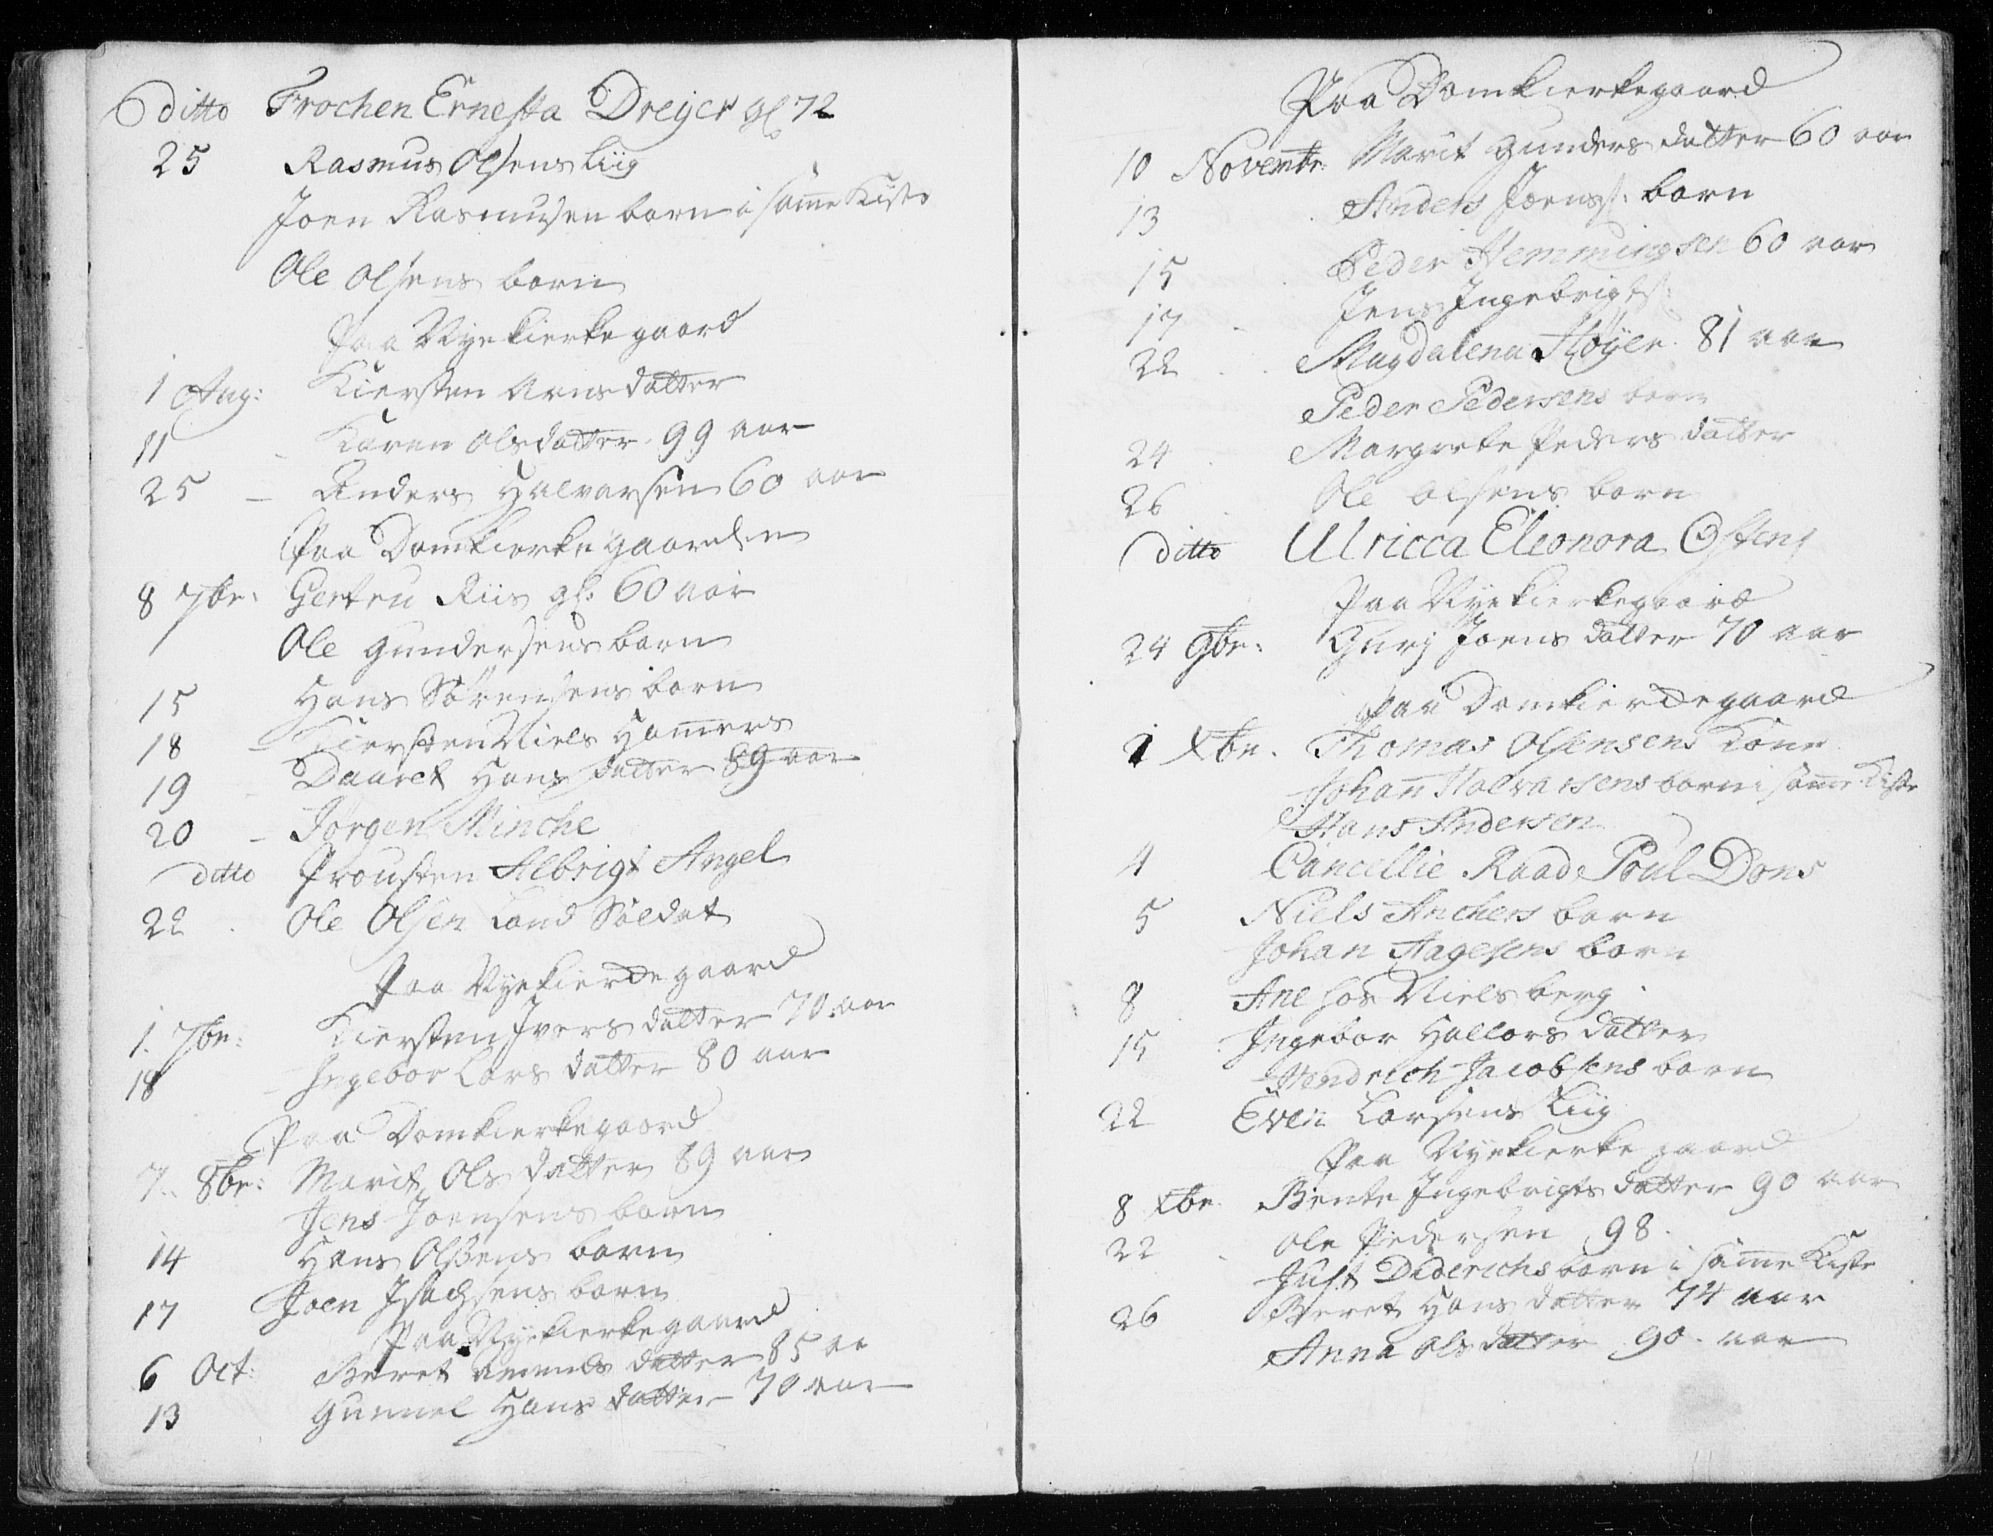 ditto Frochen Ernesta Dreyer gl 72
25 Rasmus Olsens Liig
Joen Rasmusen barn i same Kiste
Ole Olsens barn
Paa Nyekierkegaard
1 Aug: Kiersten Arnsdatter
11 Karen Olsdatter 99 aar
25 – Anders Halvarsen 60 aar
Paa Domkierkegaarden
8 7br: Gertru Riis gl: 60 aar
Ole Gundersens barn
15 Hans Sörensens barn
18 – Kiersten Niels Hamers
19 – Daaret Hans datter 89 aar
20 – Jörgen Minche
ditto Prousten Albrigt Angel
22 . Ole Olsen Land Soldat
Paa Nyekierkegaard
1. 7br: Kiersten Ivers datter 70 aar
18 – Ingebor Lars datter 80 aar
Paa Domkierkegaard
7. 8br: Marit Ols datter 89 aar
Jens Joensens barn
14 Hans Olsens barn
17 Joen Isachsens barn
Paa Nyekierkegaard
6 Oct: Beret datter 85 aa
13 Gunnel Hans datter 70 aar
Paa Domkierkegaard
10 Novembr: Marit Gunders datter 60 aar
13 . Anders Joens: barn
15 . Peder Hemmingsen 60 aar
17 – Jens Ingebrigts:
22 . . Magdalena Høyer 81 aar
Peder Pedersens barn
24 . Margrete Peders datter
26 . Ole Olsens barn
ditto Ulricca Eleonora Ostens
Paa Nyekierkegaard
24 9br: Gurj Joens datter 70 aar
Paa Domkierkegaard
1 Xbr. Thomas Olsensens Kone
Johan Halvarsens barn i same Kiste
Hans Andersen
4 Cancellie Raad Poul Dons
5 Niels Anchers barn
Johan Aagesens barn
8 . Ane hos Niels berg
15 . Ingebor Hallors datter
Hendrich Jacobsens barn
22 Even Larsens Liig
Paa Nyekierkegaard
8 Xbr. Bente Ingebrigts datter 90 aar
22 . Ole Pedersen 98.
Just Diderichs barn i same Kiste
26 Beret Hans datter 74 aar
Anna Ols datter 90. aar